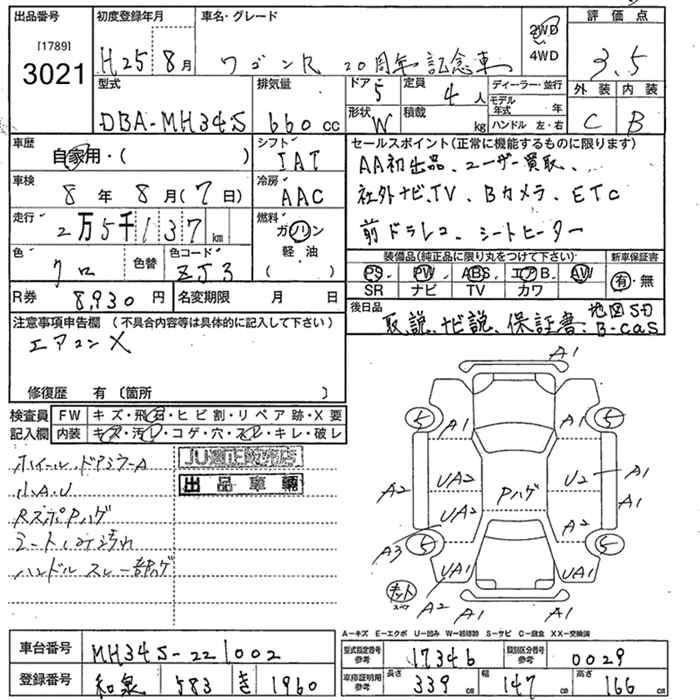 出品番号 初度登録年月 車名・グレード 2WD 評価点
[1789] 4WD
3021 H25年8月 ワゴンR 20周年記念車 3.5
型式 排気量 ドア 定員 ディーラー・並行 外装 内装
5 4人 モデル年式 年
DBA-MH34S 660cc 形状 積載 C B
W kg ハンドル 左・右
車歴 シフト セールスポイント(正常に機能するものに限ります)
自家用・( ) IAT AA初出品、ユーザー買取、
車検 冷房
8年8月(7日) AAC 社外ナビ、TV、Bカメラ、ETC
走行 燃料
2万5千137km ガソリン 前ドラレコ、シートヒーター
色 色替 色コード 軽油 装備品(純正品に限り丸をつけて下さい) 新車保証書
クロ ZJ3 PS PW ABS エアB. AW 有・無
R券 8,930円 名変期限 月 日 SR ナビ TV カワ
注意事項申告欄(不具合内容等は具体的に記入して下さい) 後日品
エアコンX 取説、ナビ説、保証書、地図SD
B-cas
修復歴 有(箇所 )
検査員 FW キズ・飛石・ヒビ割・リペア跡・X要
記入欄 内装 キズ・汚レ・コゲ・穴・スレ・キレ・破レ
ホイール、ドアミラーA
小A.U 出品車輌
RズボPハゲ
シートしみ汚れ
ハンドルスレ一部ハゲ
A1
5 A1 A1 5
UA2 U2 A1
A2 Pハゲ A1
UA2 A2
A3 5 5
UA1 UA1
キット A2 A1 A1
A-キズ E-エクボ U-凹み W-補修跡 S-サビ C-腐食 XX-交換済
車台番号 MH34S-221002 型式指定番号 参考 17346 類別区分番号 参考 0029
登録番号 和泉 583 き 1960 車庫証明用 参考 長さ 339cm 幅 147cm 高さ 166cm